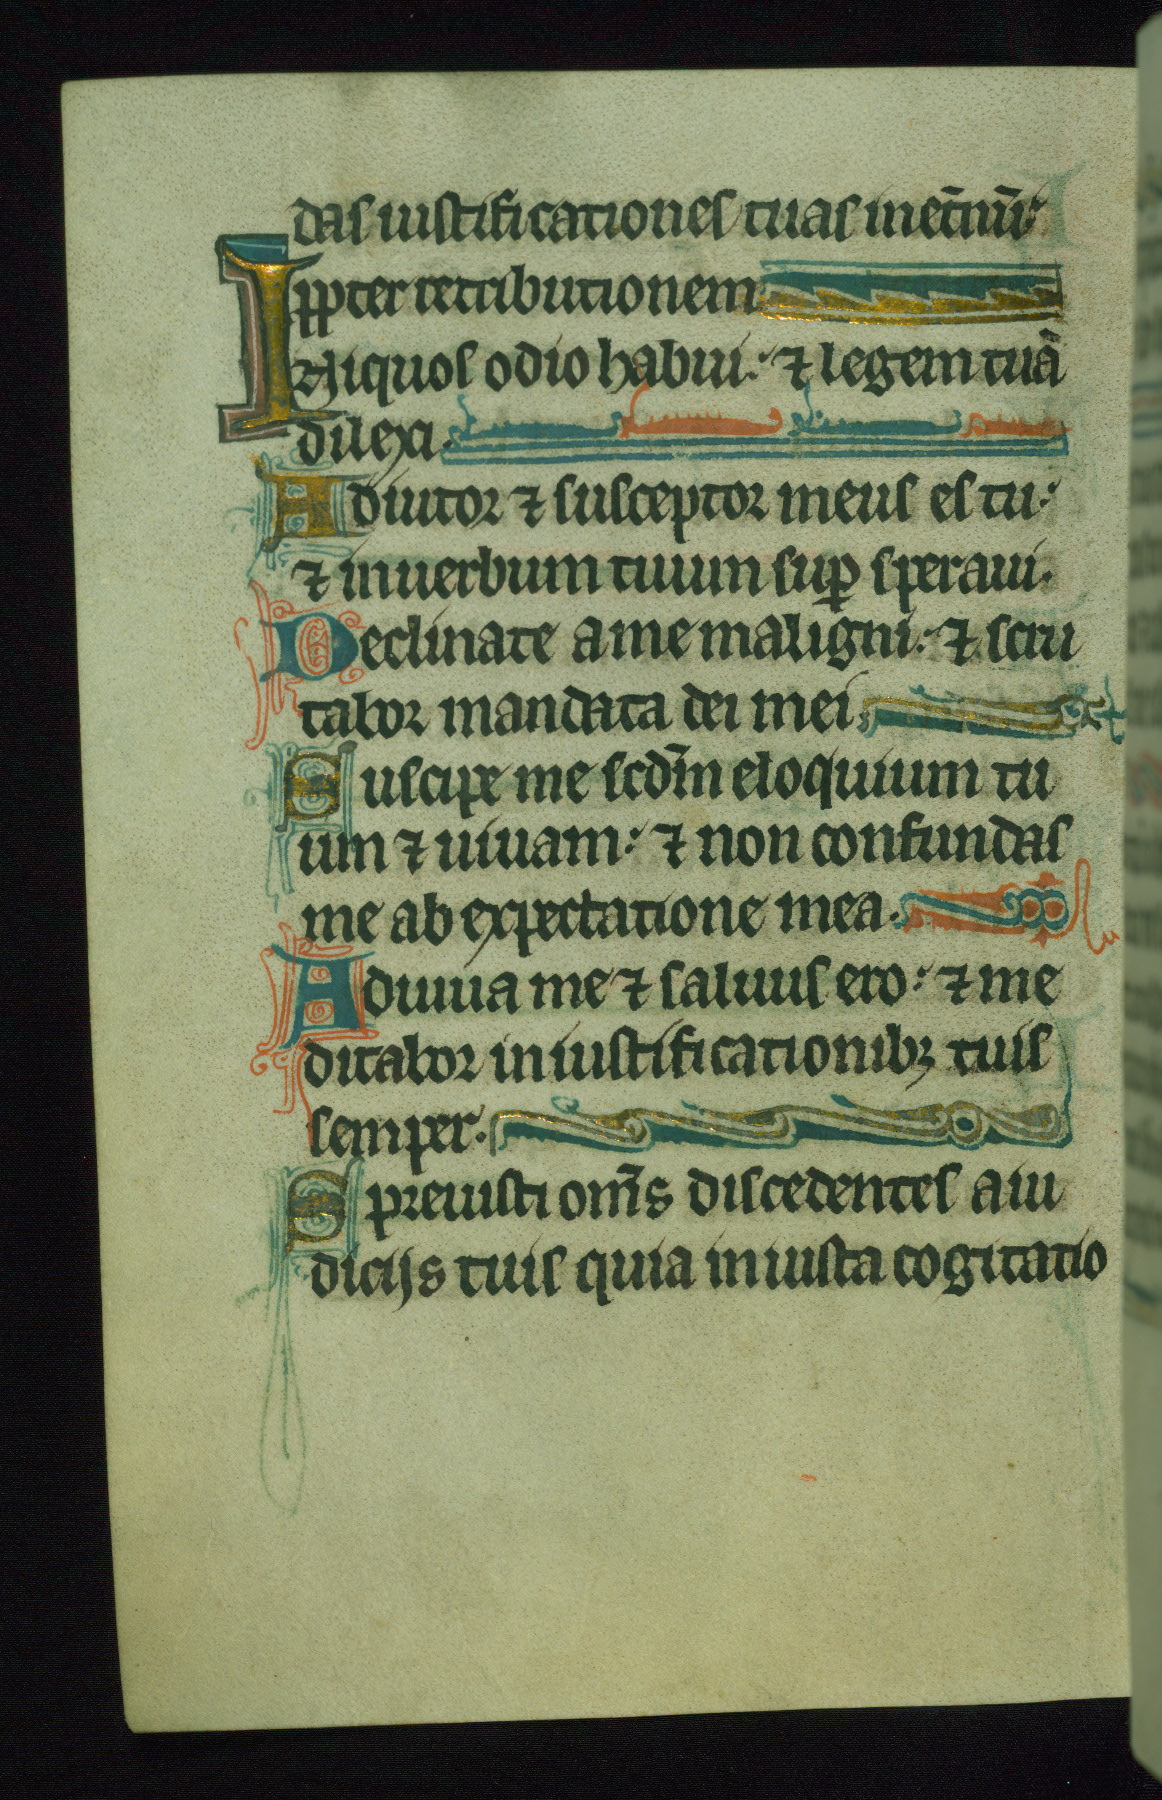 das iustificationes tuas inet̄nū:
ꝓpter retributionem
Iniquos odio habui: ⁊ legem tuā
dilexi.
Adiutor ⁊ susceptor meus es tu:
⁊ inuerbum tuum sup̱ speraui.
Declinate ame maligni: ⁊ scru
tabor mandata dei mei.
Suscipe me scd̄m eloquium tu
um ⁊ uiuam: ⁊ non confundas
me ab expectatione mea.
Adiuua me ⁊ saluus ero: ⁊ me
ditabor iniustificationibꝫ tuis
semper.
Spreuisti om̄s discedentes aiu
dicijs tuis quia iniusta cogitatio